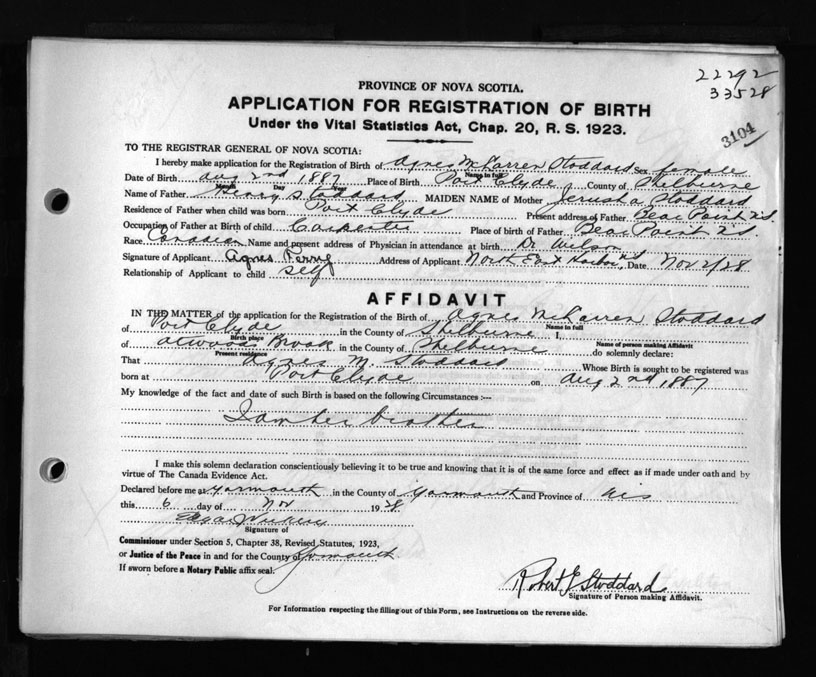 22292
33528
3104
PROVINCE OF NOVA SCOTIA.
APPLICATION FOR REGISTRATION OF BIRTH
Under the Vital Statistics Act, Chap. 20, R. S. 1923.
TO THE REGISTRAR GENERAL OF NOVA SCOTIA:
I hereby make application for the Registration of Birth of Agnes McLarren Stoddard Sex female
Name in full
Date of Birth Aug 2nd 1887 Place of Birth Port Clyde County of Shelburne
Month Day Year
Name of Father Henry S. Stoddard MAIDEN NAME of Mother Jerusha Stoddard
Residence of Father when child was born Port Clyde Present address of Father Bear Point N.S.
Occupation of Father at Birth of child Carpenter Place of birth of Father Bear Point N.S.
Race Canadian Name and present address of Physician in attendance at birth Dr Wilson
Signature of Applicant Agnes Perry Address of Applicant North East Harbor, N.S. Date Nov 2/28
Relationship of Applicant to child self
AFFIDAVIT
IN THE MATTER of the application for the Registration of the Birth of Agnes McLarren Stoddard
Name in full
of Port Clyde in the County of Shelburne I,
Birth place Name of person making Affidavit
of Atwoods Brook in the County of Shelburne do solemnly declare:
Present residence
That Agnes M. Stoddard Whose Birth is sought to be registered was
born at Port Clyde on Aug 2nd 1887
My knowledge of the fact and date of such Birth is based on the following Circumstances :---
I am her brother
I make this solemn declaration conscientiously believing it to be true and knowing that it is of the same force and effect as if made under oath and by
virtue of The Canada Evidence Act.
Declared before me at Yarmouth in the County of Yarmouth and Province of N.S
this 6 day of Nov 1928
Signature of
Commissioner under Section 5, Chapter 38, Revised Statutes, 1923,
or Justice of the Peace in and for the County of Yarmouth
If sworn before a Notary Public affix seal.
Robert J Stoddard
Signature of Person making Affidavit.
For Information respecting the filling out of this Form, see Instructions on the reverse side.